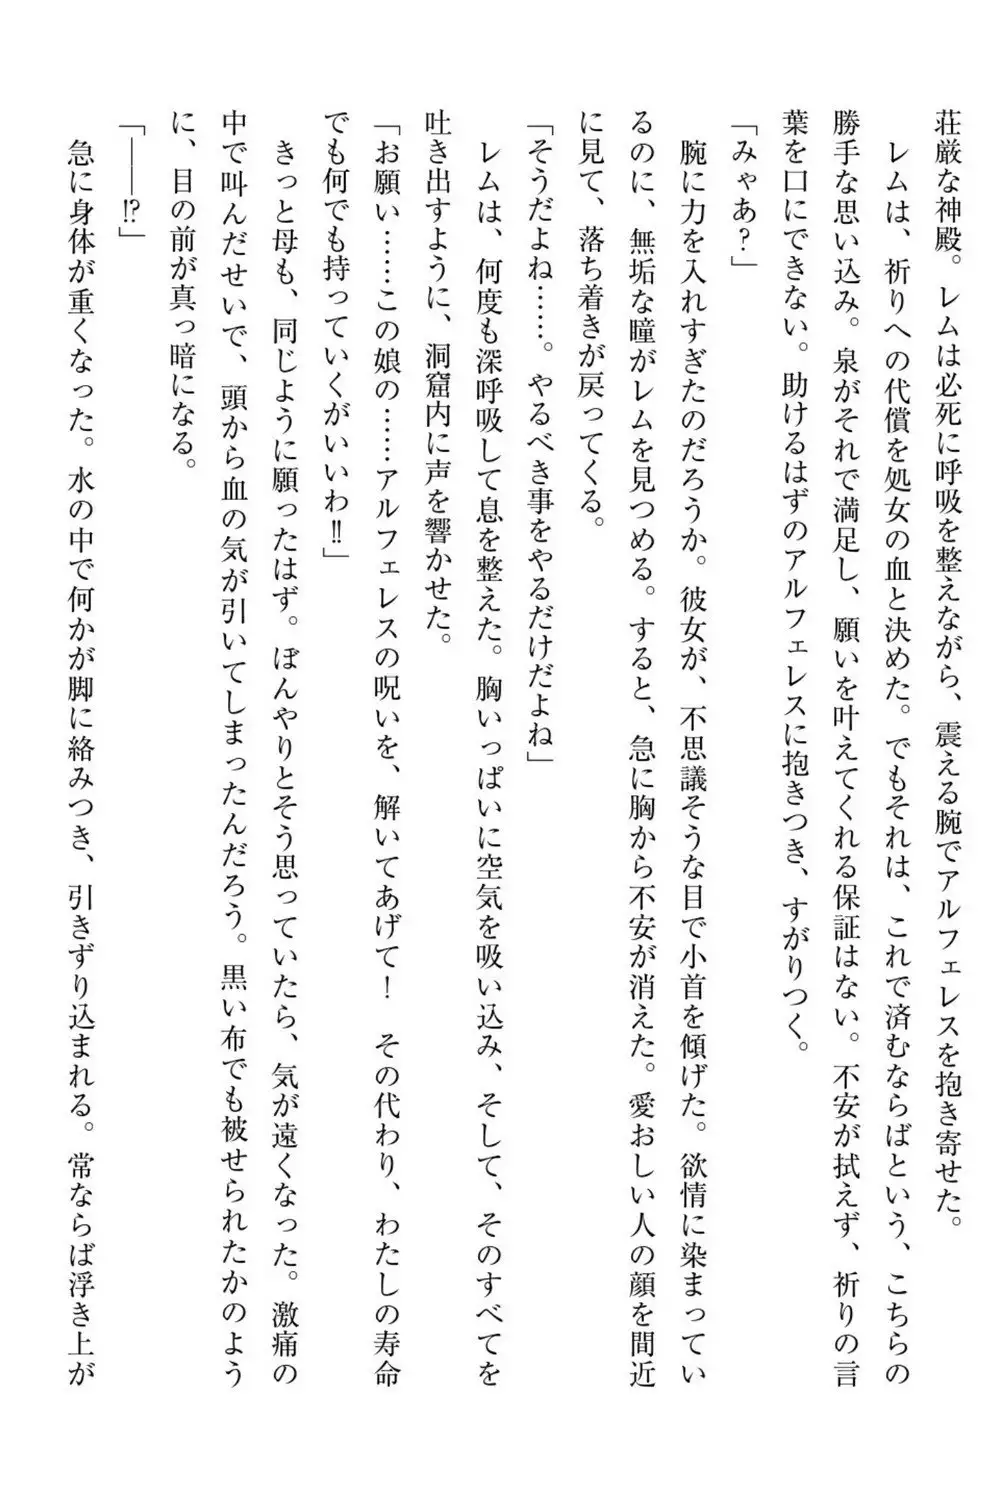 荘厳な神殿。レムは必死に呼吸を整えながら、震える腕でアルフェレスを抱き寄せた。
レムは、祈りへの代償を処女の血と決めた。でもそれは、これで済むならばという、こちらの
勝手な思い込み。泉がそれで満足し、願いを叶えてくれる保証はない。不安が拭えず、祈りの言
葉を口にできない。助けるはずのアルフェレスに抱きつき、すがりつく。
「みゃあ？」
腕に力を入れすぎたのだろうか。彼女が、不思議そうな目で小首を傾げた。欲情に染まってい
るのに、無垢な瞳がレムを見つめる。すると、急に胸から不安が消えた。愛おしい人の顔を間近
に見て、落ち着きが戻ってくる。
「そうだよね……。やるべき事をやるだけだよね」
レムは、何度も深呼吸して息を整えた。胸いっぱいに空気を吸い込み、そして、そのすべてを
吐き出すように、洞窟内に声を響かせた。
「お願い……この娘の……アルフェレスの呪いを、解いてあげて！　その代わり、わたしの寿命
でも何でも持っていくがいいわ‼」
きっと母も、同じように願ったはず。ぼんやりとそう思っていたら、気が遠くなった。激痛の
中で叫んだせいで、頭から血の気が引いてしまったんだろう。黒い布でも被せられたかのよう
に、目の前が真っ暗になる。
「――⁉」
急に身体が重くなった。水の中で何かが脚に絡みつき、引きずり込まれる。常ならば浮き上が